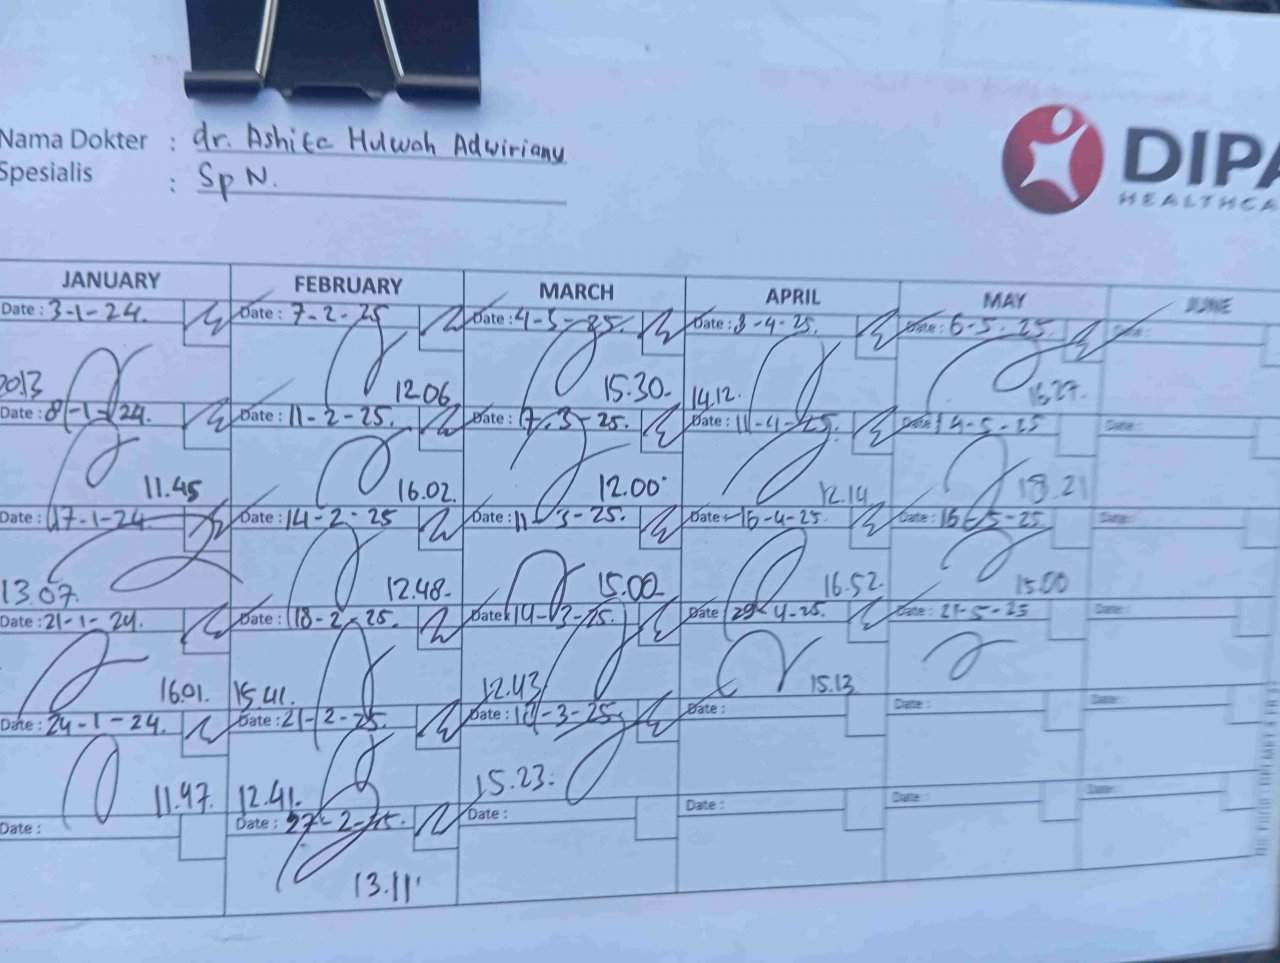 Nama Dokter : dr. Ashita Hulwah Adwiriany
Spesialis : Sp N.
DIPA
HEALTHCA
JANUARY FEBRUARY MARCH APRIL MAY JUNE
Date : 3-1-24. Date : 7-2-25 Date : 4-3-25. Date : 8-4-25. Date : 6-5-25 Date :
2013 12.06 15.30. 14.12. 16.27.
Date : 8-1-24. Date : 11-2-25. Date : 7-3-25. Date : 11-4-25. Date : 14-5-25 Date :
11.45 16.02. 12.00 12.14 18.21
Date : 17-1-24 Date : 14-2-25 Date : 11-3-25. Date : 15-4-25. Date : 16-5-25 Date :
13.07. 12.48. 15.00 16.52. 15.00
Date : 21-1-24. Date : 18-2-25. Date : 14-3-25. Date : 29-4-25. Date : 21-5-25 Date :
16.01. 15.41. 12.43 15.13
Date : 24-1-24. Date : 21-2-25. Date : 18-3-25. Date : Date : Date :
11.47. 12.41. 15.23.
Date : Date : 27-2-25. Date : Date : Date : Date :
13.11